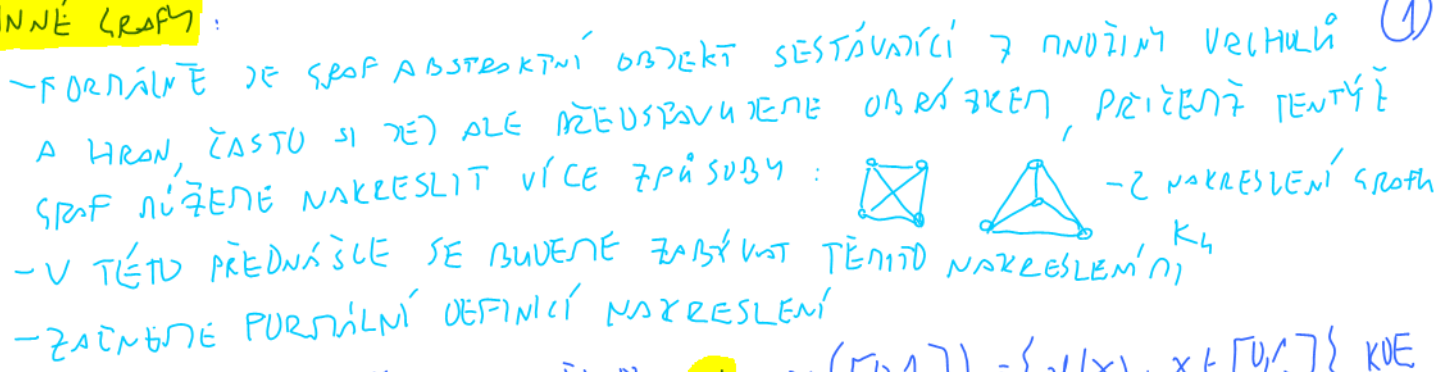 INNÉ GRAFY: (1)
- FORMÁLNĚ JE GRAF ABSTRAKTNÍ OBJEKT SESTÁVAJÍCÍ Z MNOŽINY VRCHOLŮ
A HRAN, ČASTO SI JEJ ALE PŘEDSTAVUJEME OBRÁZKEM, PŘIČEMŽ TENTÝŽ
GRAF MŮŽEME NAKRESLIT VÍCE ZPŮSOBY: - 2 NAKRESLENÍ GRAFU
K4
- V TÉTO PŘEDNÁŠCE SE BUDEME ZABÝVAT TĚMITO NAKRESLENÍMI
- ZAČNEME FORMÁLNÍ DEFINICÍ NAKRESLENÍ
([0,1]) = { (x), x ∈ [0,1]} KDE